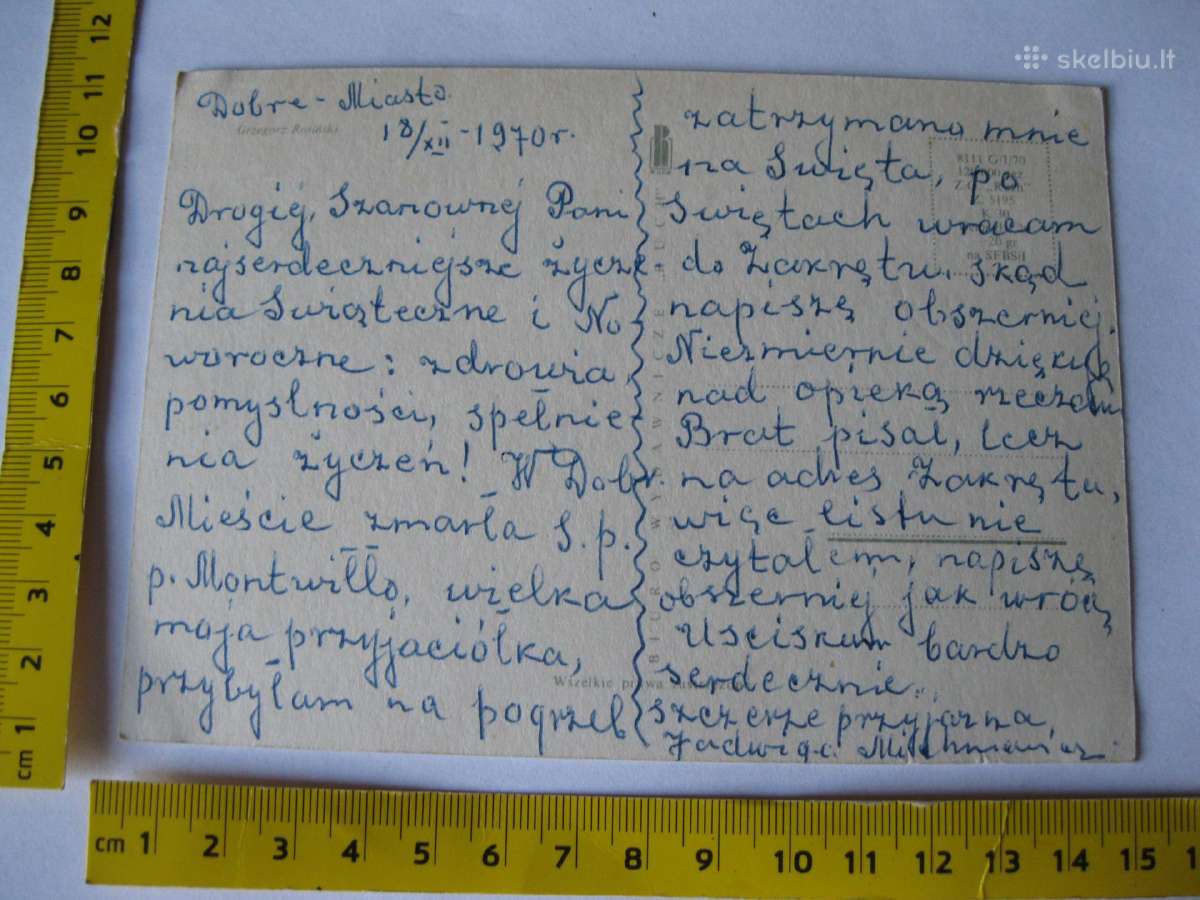 skelbiu.lt
Dobre-Miasto
Grzegorz Rosiński
18/XII-1970r.
Drogiej, Szanownej Pani
najserdeczniejsze życze-
nia Swiąteczne i No
woroczne: zdrowia,
pomyslności, spełnie-
nia życzeń! W Dobr.
Mieście zmarła S.p.
p. Montwiłło, wielka
moja przyjaciółka,
przybyłam na pogrzeb
zatrzymano mnie
na Swięta, po
Swiętach wracam
do Zakrętu, skąd
napiszę obszerniej.
Niezmiernie dziękuję
nad opieką rzeczami
Brat pisał, lecz
na adres Zakrętu,
więc listu nie
czytałem, napiszę
obszerniej jak wrócę
Usciskam bardzo
serdecznie
szczerze przyjazna
Jadwiga
8311 G/1/70
5195
20 gr
BIURO WYDAWNICZE RUCH
Wszelkie prawa
cm 1 2 3 4 5 6 7 8 9 10 11 12
cm 1 2 3 4 5 6 7 8 9 10 11 12 13 14 15